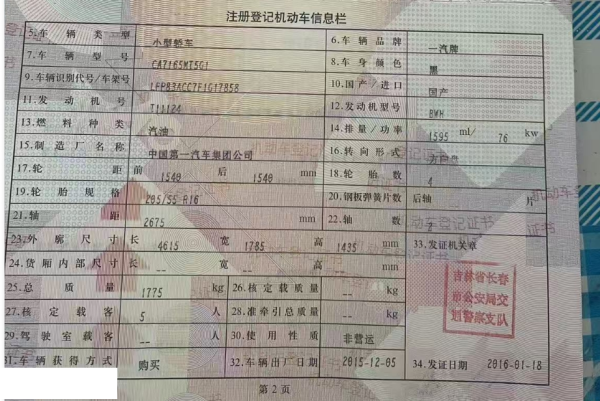 注册登记机动车信息栏
5.车辆类型 小型轿车 6.车辆品牌 一汽牌
7.车辆型号 CA7165MT5G1 8.车身颜色 黑
9.车辆识别代号/车架号 10.国产/进口 国产
11.发动机号 12.发动机型号 BWH
13.燃料种类 汽油 14.排量/功率 1595 ml/ 76 kw
15.制造厂名称 中国第一汽车集团公司 16.转向形式 方向盘
17.轮距 前 1540 后 1540 mm 18.轮胎数 4
19.轮胎规格 205/55 R16 20.钢板弹簧片数 后轴 片
21.轴距 2675 mm 22.轴数 2
23.外廓尺寸 长 4615 宽 1785 高 1435 mm 33.发证机关章
24.货厢内部尺寸 长 -- 宽 -- 高 -- mm
吉林省长春
市公安局交
通警察支队
25.总质量 1775 kg 26.核定载质量 -- kg
27.核定载客 5 人 28.准牵引总质量 -- kg
29.驾驶室载客 -- 人 30.使用性质 非营运
31.车辆获得方式 购买 32.车辆出厂日期 2015-12-05 34.发证日期 2016-01-18
第2页